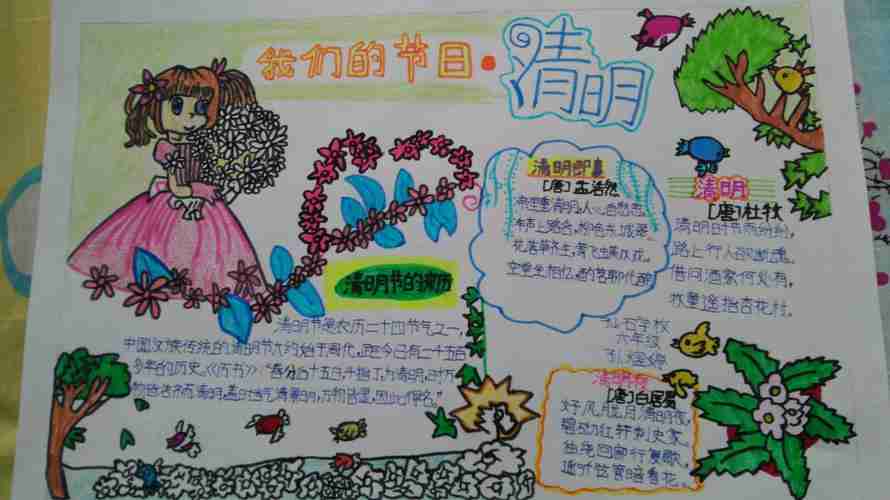 我们的节日·清明
清明节的来历
清明节是农历二十四节气之一，
中国汉族传统的清明节大约始于周代，距今已有二千五百
多年的历史。《历书》："春分后十五日，斗指丁，为清明，时万
物皆洁齐而清明，盖时当气清景明，万物皆显，因此得名。"
清明即事
[唐]孟浩然
帝里重清明，人心自愁思。
车声上路合，柳色东城翠。
花落草齐生，莺飞蝶双戏。
空堂坐相忆，酌茗聊代醉。
清明
[唐]杜牧
清明时节雨纷纷，
路上行人欲断魂。
借问酒家何处有，
牧童遥指杏花村。
学校
六年级
清明夜
[唐]白居易
好风胧月清明夜，
碧砌红轩刺史家。
独绕回廊行复歇，
遥听弦管暗看花。